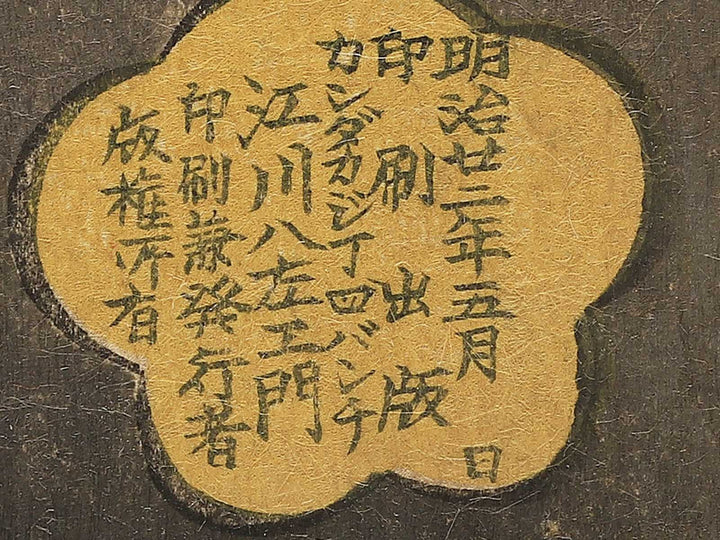 明治廿二年五月 日
印刷出版
カンダカジ丁四バンチ
江川八左エ門
印刷兼發行者
版権所有